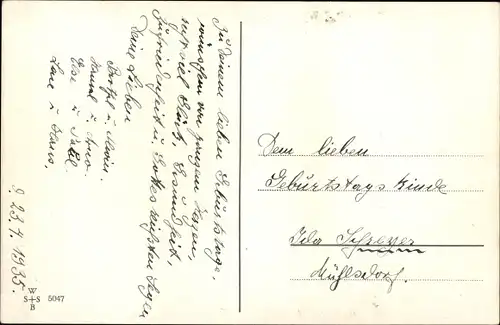 Zu Deinem lieben Geburtstage,
wünschen von ganzen Herzen,
recht viel Glück, Gesundheit,
Zufriedenheit u. Gottes reichsten Segen
Deine Lieben
u.
Else u. Paul
u. Hans.
S. 23.4.1935.
W
S+S 5047
B
Dem lieben
Geburtstags Kinde
Ida
Mühlsdorf.